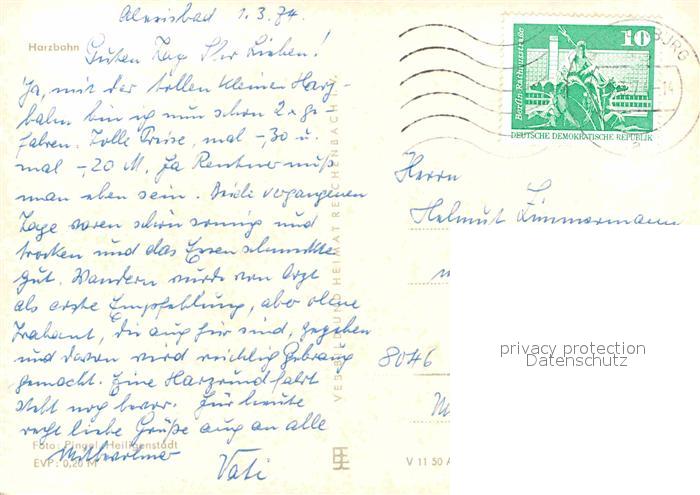 Alexisbad 1.3.74.
Harzbahn
Guten Tag Ihr Lieben!
Ja, mit der tollen kleinen Harz-
bahn bin ich nun schon 2x ge-
fahren. Tolle Preise, mal -,30 u.
mal -,20 M. Ja Rentner muß
man eben sein. Beide vergangenen
Tage waren schön sonnig und
trocken und das Essen schmeckte
gut. Wandern wurde vom Arzt
als erste Empfehlung, aber ohne
Trabant, die auch hier sind, gegeben
und davon wird reichlich Gebrauch
gemacht. Eine Harzrundfahrt
steht noch bevor. Für heute
recht liebe Grüße auch an alle
Mitbewohner
Vati
Foto: Pingel, Heiligenstadt
EVP: 0,20 M
VEB BILD UND HEIMAT REICHENBACH
V 11 50 A
10
Berlin, Rathausstraße
DEUTSCHE DEMOKRATISCHE REPUBLIK
BURG
14
Herrn
Helmut Zimmermann
8046
privacy protection
Datenschutz